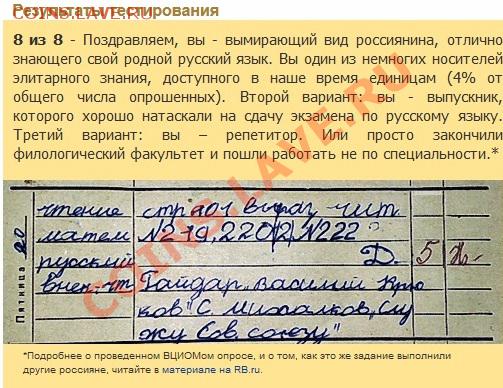 Результаты тестирования
COINS.LAVE.RU
8 из 8 - Поздравляем, вы - вымирающий вид россиянина, отлично
знающего свой родной русский язык. Вы один из немногих носителей
элитарного знания, доступного в наше время единицам (4% от
общего числа опрошенных). Второй вариант: вы - выпускник,
которого хорошо натаскали на сдачу экзамена по русскому языку.
Третий вариант: вы – репетитор. Или просто закончили
филологический факультет и пошли работать не по специальности.*
COINS.LAVE.RU
чтение стр 201 выраз. чит.
матем №219, 220(2), №222
русский Д. 5
внек. чт Гайдар „Василий Крю
ков" С. Михалков „Слу
жу Сов. союзу"
Пятница 20
*Подробнее о проведенном ВЦИОМом опросе, и о том, как это же задание выполнили
другие россияне, читайте в материале на RB.ru.